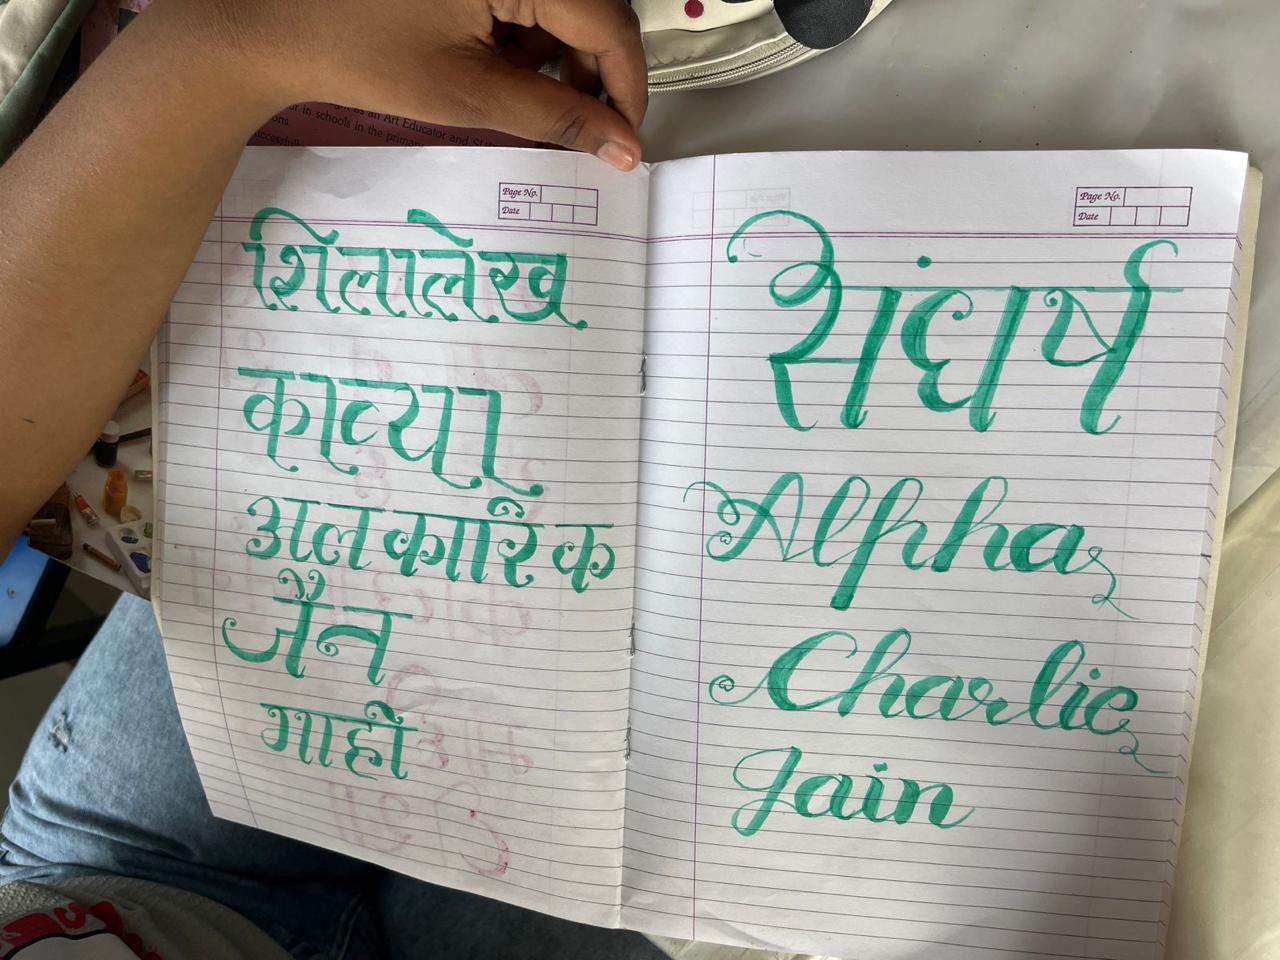 ght as an Art Educator and
ur in schools in the primar
ons.
uccessfull
Page No.
Date
शिलालेख
काव्या
अलकारिक
जैन
गाही
Page No.
Date
संघर्ष
Alpha
Charlie
Jain